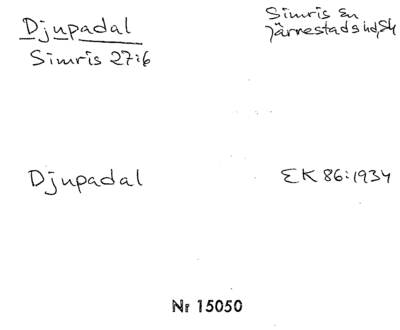 Djupadal
Simris sn
Järrestads hd, Sk
Simris 27:6
Djupadal
EK 86:1934
Nr 15050